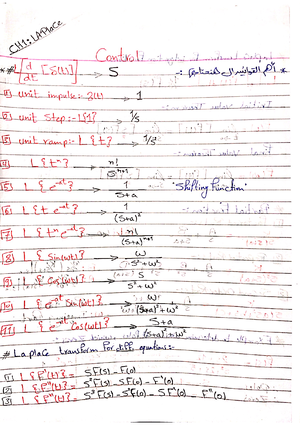 CH1: LAPlace
Control
* أهم القوانين المستخدمة :-
** # d/dt [δ(t)] → S
1 unit impulse:- δ(t) → 1
2 unit step:- L{1} → 1/s
3 unit ramp:- L{t} → 1/s²
4 L{tⁿ} → n!/Sⁿ⁺¹
5 L{e⁻ᵃᵗ} → 1/(S+a) "Shifting Function"
6 L{t e⁻ᵃᵗ} → 1/(S+a)²
7 L{tⁿ e⁻ᵃᵗ} → n!/(S+a)ⁿ⁺¹
8 L{Sin(ωt)} → ω/(S²+ω²)
9 L{Cos(ωt)} → S/(S²+ω²)
10 L{e⁻ᵃᵗ Sin(ωt)} → ω/((S+a)²+ω²)
11 L{e⁻ᵃᵗ Cos(ωt)} → (S+a)/((S+a)²+ω²)
# Laplace transform for diff. equations:-
1 L{F'(t)} = SF(S) - F(0)
2 L{F''(t)} = S²F(S) - SF(0) - F'(0)
3 L{F'''(t)} = S³F(S) - S²F(0) - SF'(0) - F''(0)